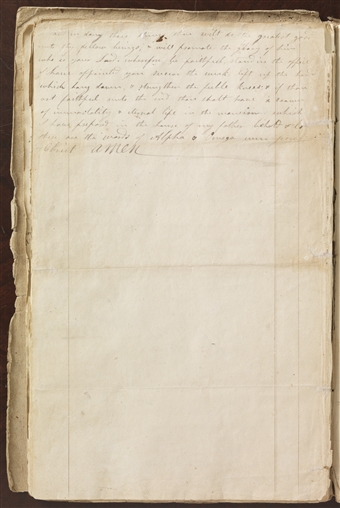 in doing these things thou wilt do the greatest good
unto thy fellow beings, & will promote the glory of him
who is your Lord wherefore be faithful stand in the office
I have appointed you succor the weak lift up the hands
which hang down & strengthen the feeble knees & if thou
art faithful unto the end thou shalt have a crown
of immortality & eternal life in the mansions which
I have prepared in the house of my father behold & lo
these are the words of Alpha & Omega even Jesus
Christ AMEN